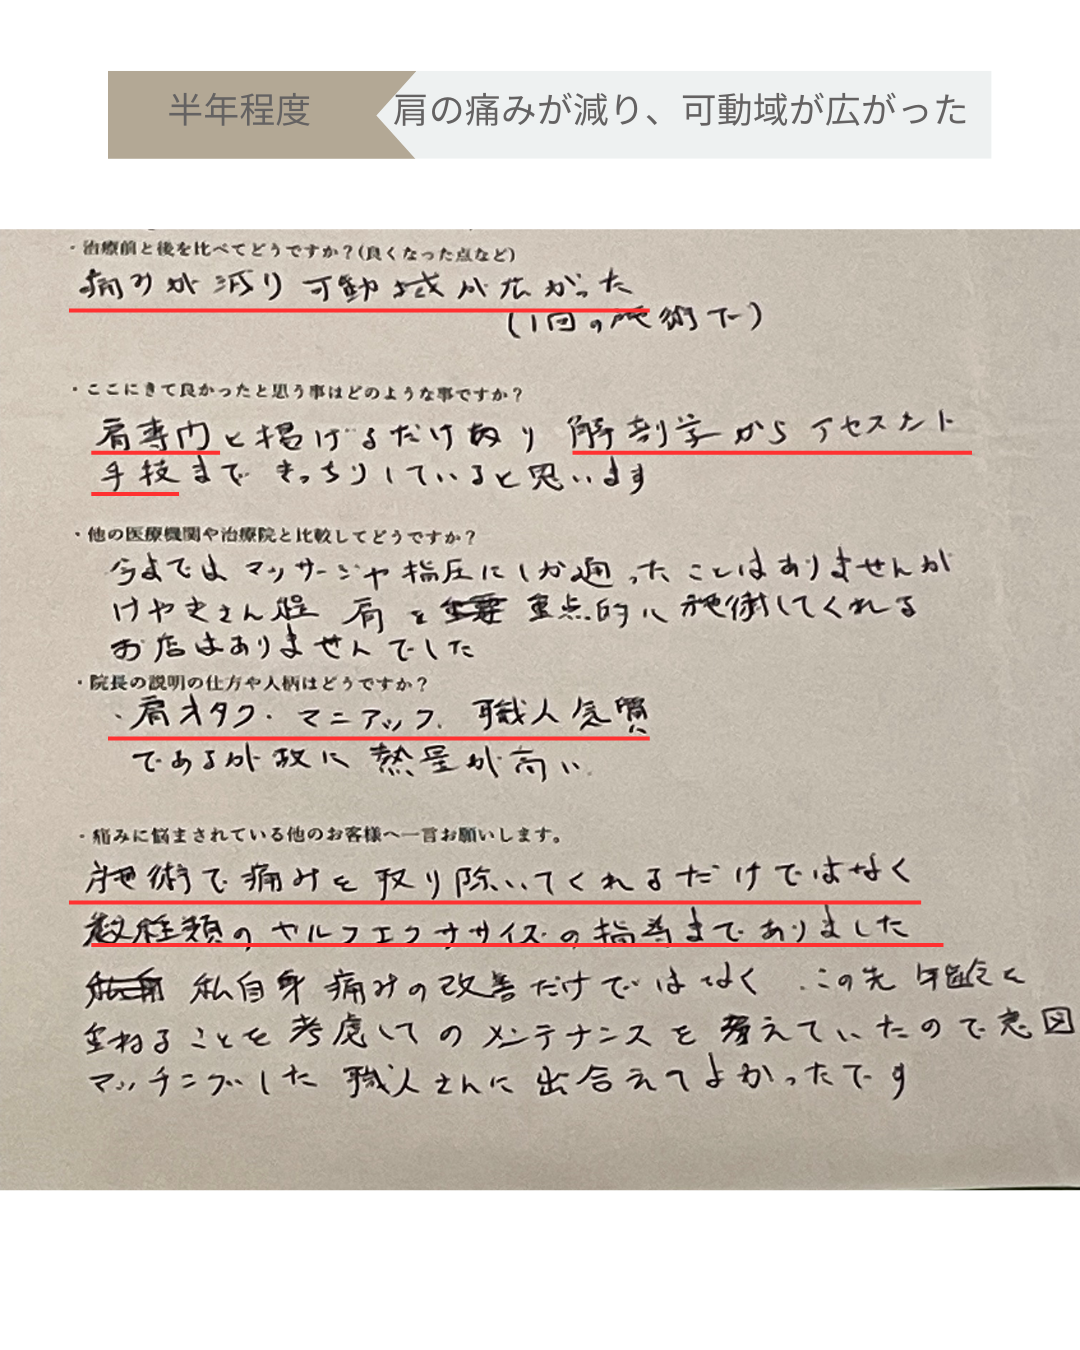 半年程度
肩の痛みが減り、可動域が広がった
・治療前と後を比べてどうですか？(良くなった点など)
痛みが減り 可動域が広がった
(1回の施術で)
・ここにきて良かったと思う事はどのような事ですか？
肩専門と掲げるだけあり 解剖学からアセスメント
手技まできっちりしていると思います
・他の医療機関や治療院と比較してどうですか？
今まではマッサージや指圧にしか通ったことはありませんが
けやきさん程 肩を 重点的に施術してくれる
お店はありませんでした
・院長の説明の仕方や人柄はどうですか？
・肩オタク・マニアック、職人気質
であるが故に 熱量が高い
・痛みに悩まされている他のお客様へ一言お願いします。
施術で痛みを取り除いてくれるだけではなく
数種類のセルフエクササイズの指導までありました
私自身 痛みの改善だけではなく この先 年齢を
重ねることを考慮してのメンテナンスを考えていたので意図
マッチングした 職人さんに出会えてよかったです